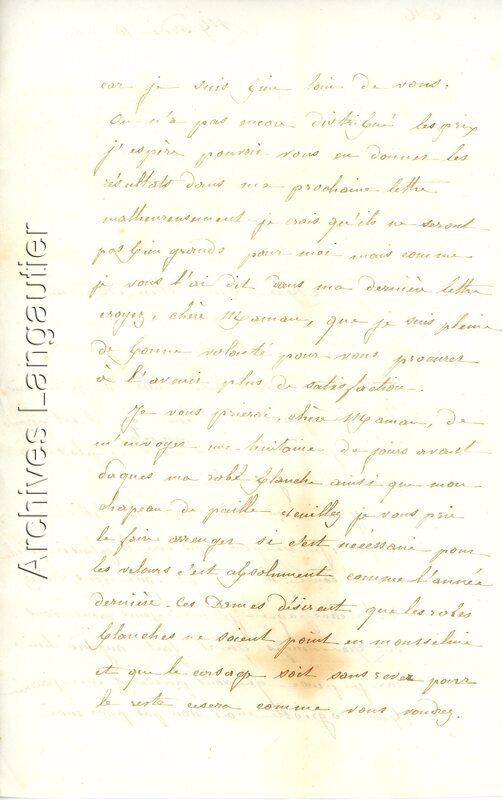 car je suis bien loin de vous.
On n'a pas encore distribué les prix
j'espère pouvoir vous en donner les
résultats dans ma prochaine lettre
malheureusement je crois qu'ils ne seront
pas bien grands pour moi mais comme
je vous l'ai dit dans ma dernière lettre
croyez, chère Maman, que je suis pleine
de bonne volonté pour vous procurer
à l'avenir plus de satisfaction.
Je vous prierai, chère Maman, de
m'envoyer une huitaine de jours avant
Pâques ma robe blanche ainsi que mon
chapeau de paille veuillez je vous prie
le faire arranger si c'est nécessaire pour
les velours c'est absolument comme l'année
dernière. Ces Dames désirent que les robes
blanches ne soient point en mousseline
et que le corsage soit sans revers pour
le reste ce sera comme vous voudrez.
Archives Langautier